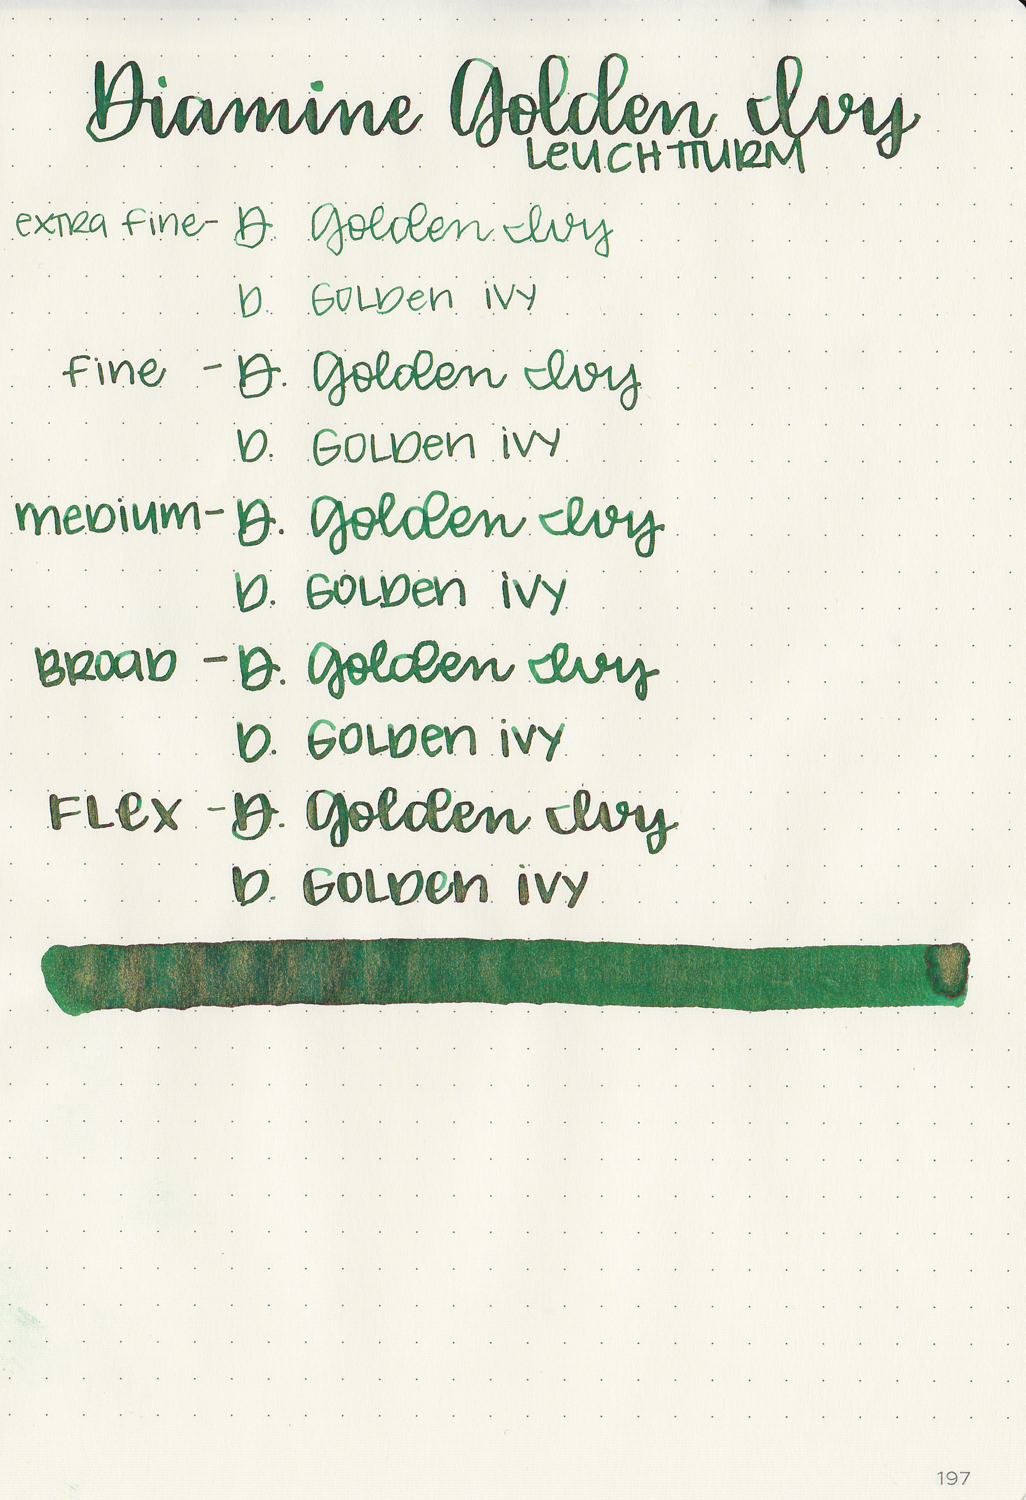 Diamine Golden Ivy
LEUCHTTURM
extra fine- D. Golden Ivy
D. GOLDen iVY
Fine - D. Golden Ivy
D. GOLDen iVY
meDium- D. Golden Ivy
D. GOLDen iVY
BROaD - D. Golden Ivy
D. GOLDen iVY
FLex - D. Golden Ivy
D. GOLDen iVY
197